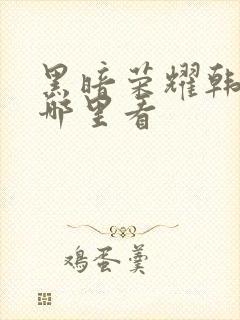 黑暗荣耀韩
哪里看
鸡蛋羹